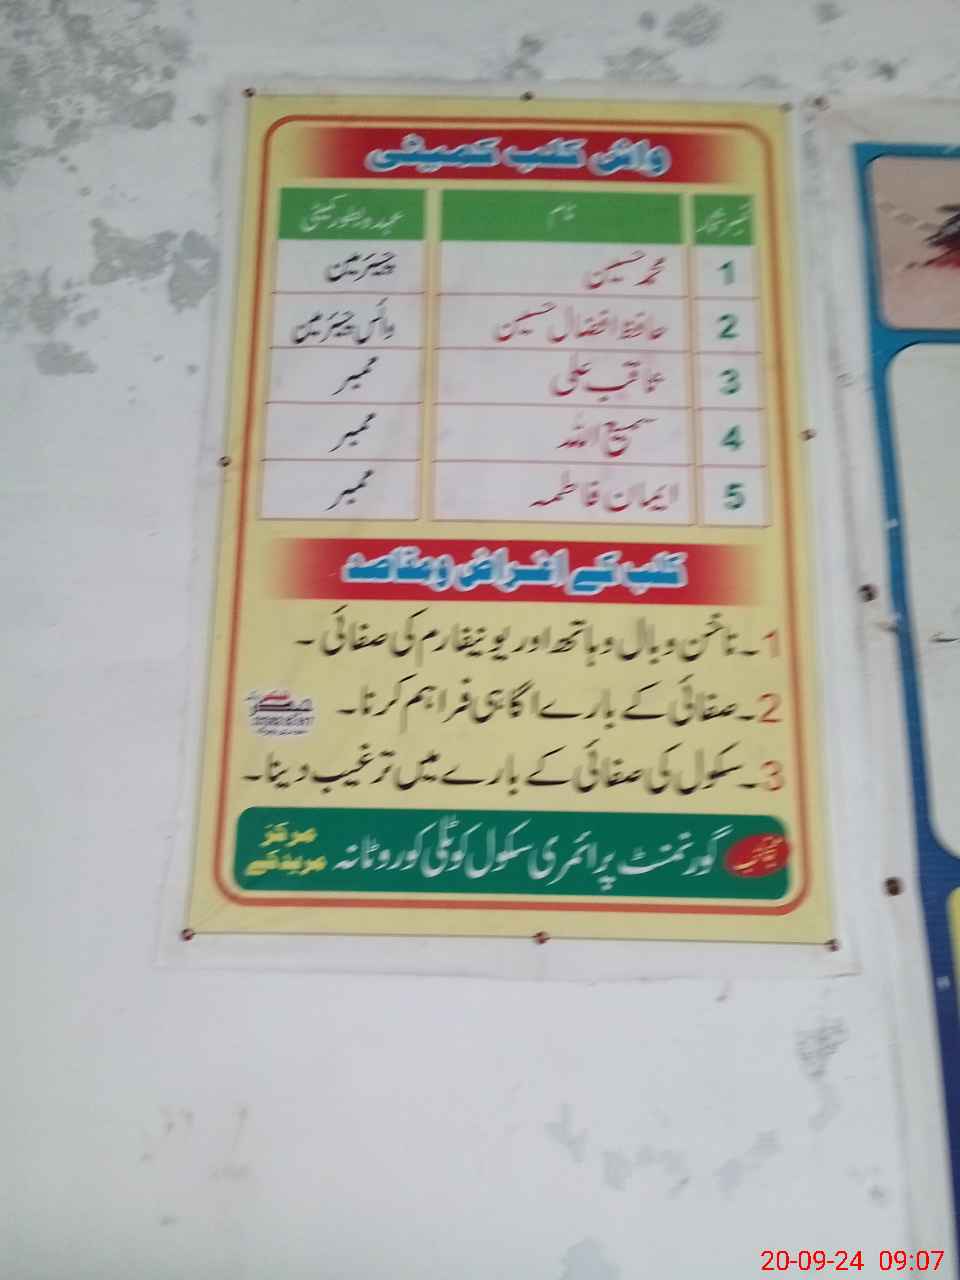 واش کلب کمیٹی
نمبر شمار نام عہدہ بطور کمیٹی
1 محمد حسین چیئرمین
2 حافظ افضال حسین وائس چیئرمین
3 عاقب علی ممبر
4 سمیع اللہ ممبر
5 ایمان فاطمہ ممبر
کلب کے اغراض و مقاصد
1۔ ناخن و بال و ہاتھ اور یونیفارم کی صفائی ۔
2۔ صفائی کے بارے اگاہی فراہم کرنا۔
3۔ سکول کی صفائی کے بارے میں ترغیب دینا۔
منجانب گورنمنٹ پرائمری سکول کوٹلی کوروٹانہ مرکز مریدکے
20-09-24 09:07